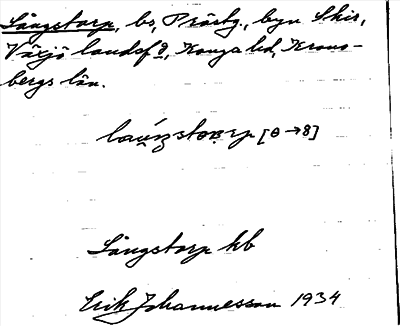 Långstorp, bs, Prästg., byn Skir,
Växjö landsf ð, Konga hd, Krono-
bergs län.
[ɵ → 8]
Långstorp hb
Erik Johannesson 1934